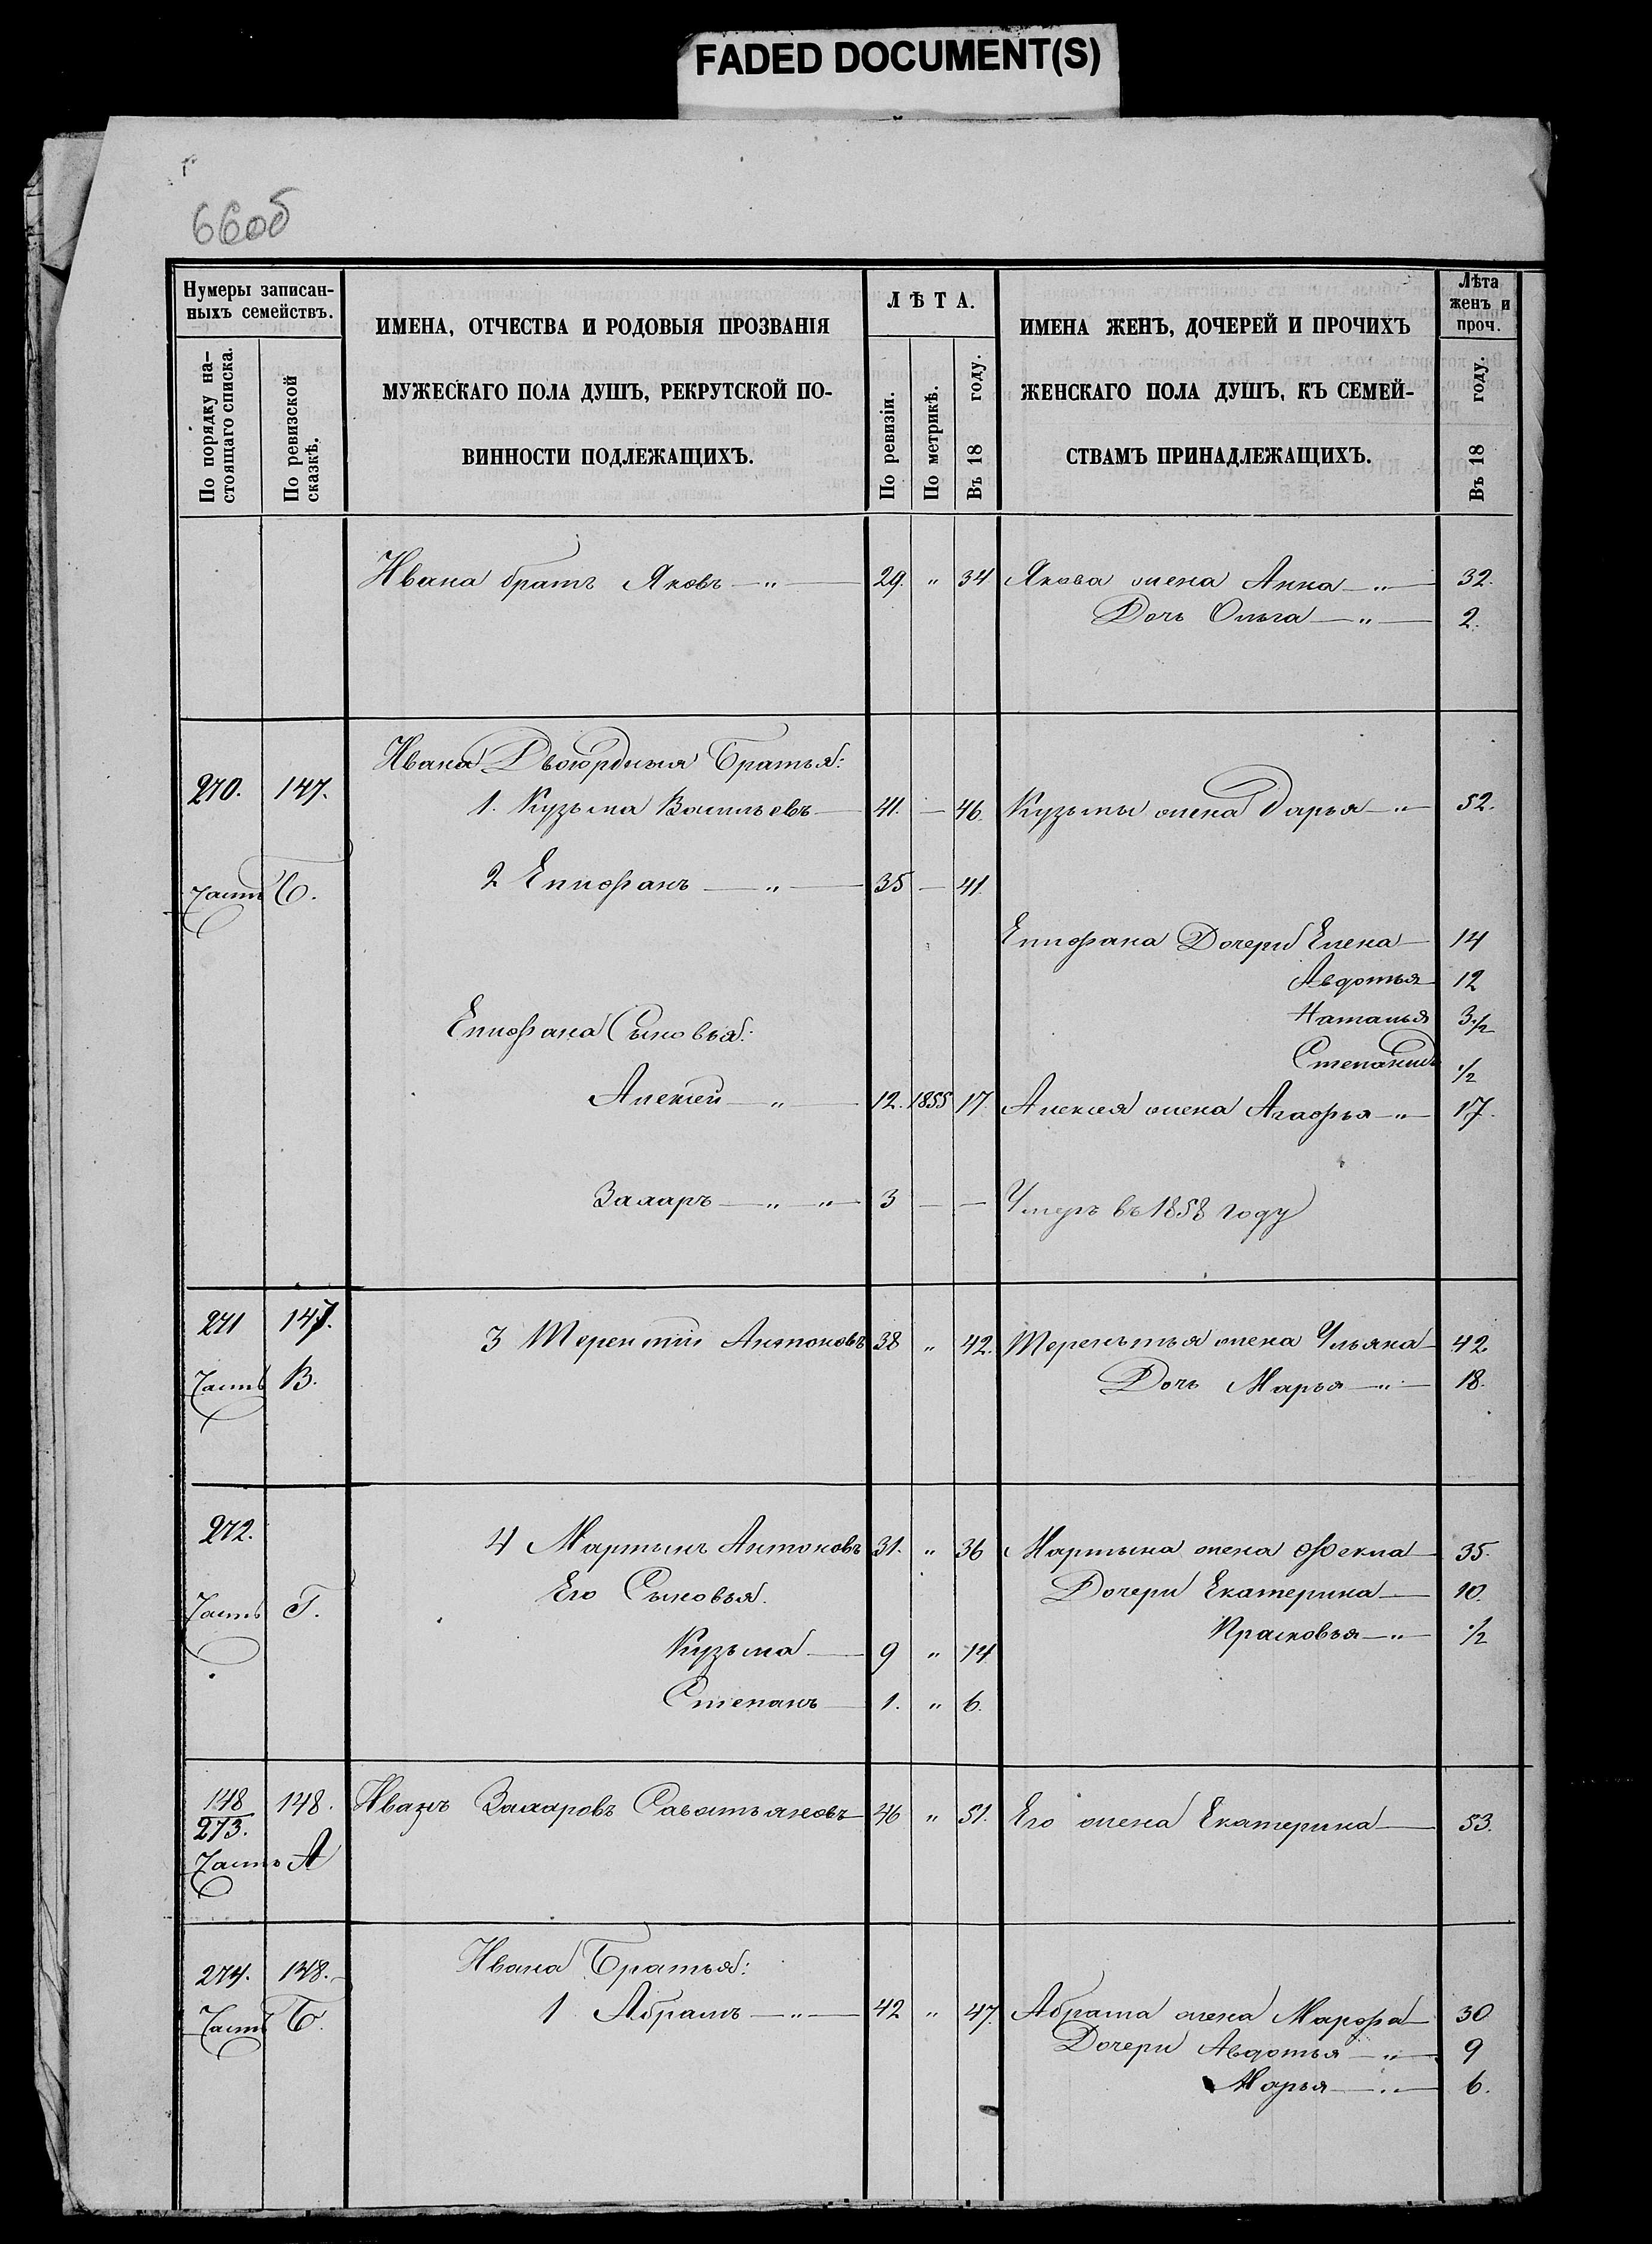 FADED DOCUMENT(S)
66об
Нумеры записан-
ныхъ семействъ.
По порядку на-
стоящаго списка.
По ревизской
сказкѣ.
ИМЕНА, ОТЧЕСТВА И РОДОВЫЯ ПРОЗВАНІЯ
МУЖЕСКАГО ПОЛА ДУШЪ, РЕКРУТСКОЙ ПО-
ВИННОСТИ ПОДЛЕЖАЩИХЪ.
ЛѢТА.
По ревизіи.
По метрикѣ.
Въ 18 году.
ИМЕНА ЖЕНЪ, ДОЧЕРЕЙ И ПРОЧИХЪ
ЖЕНСКАГО ПОЛА ДУШЪ, КЪ СЕМЕЙ-
СТВАМЪ ПРИНАДЛЕЖАЩИХЪ.
Лѣта
женъ и
проч.
Въ 18 году.
Ивана братъ Яковъ — „ — 29. „ 34 Якова жена Анна — „ — 32.
Дочь Ольга — „ — 2.
Ивана Двоюродныя Братья:
270. 147. 1. Кузьма Васильевъ — 41. — 46. Кузьмы жена Дарья — „ 52.
Часть Б. 2 Епифанъ — „ — 35 — 41.
Епифана Дочери Елена — 14
Авдотья 12
Наталья 3 1/2
Епифана Сыновья:
Степанида 1/2
Алексей — „ — 12. 1855 17. Алексея жена Агафья — „ — 17.
Захаръ — „ — „ — 3 — — Умеръ въ 1858 году
271 147. 3 Терентій Антоновъ 38 „ 42. Терентья жена Ульяна — 42
Часть В. Дочь Марья — „ — 18.
272. 4 Мартынъ Антоновъ 31. „ 36 Мартына жена Фекла — 35.
Часть Г. Его Сыновья. Дочери Екатерина — 10.
Кузьма — 9 „ 14 Прасковья — „ — 1/2
Степанъ — 1. „ 6.
148/273. 148. Иванъ Захаровъ Саватьяновъ 46 „ 51. Его жена Екатерина — 53.
Часть А
Ивана Братья:
274. 148. 1 Абрамъ — „ — 42 „ 47. Абрама жена Марфа — 30
Часть Б. Дочери Авдотья — „ — 9
Марья — „ — 6.